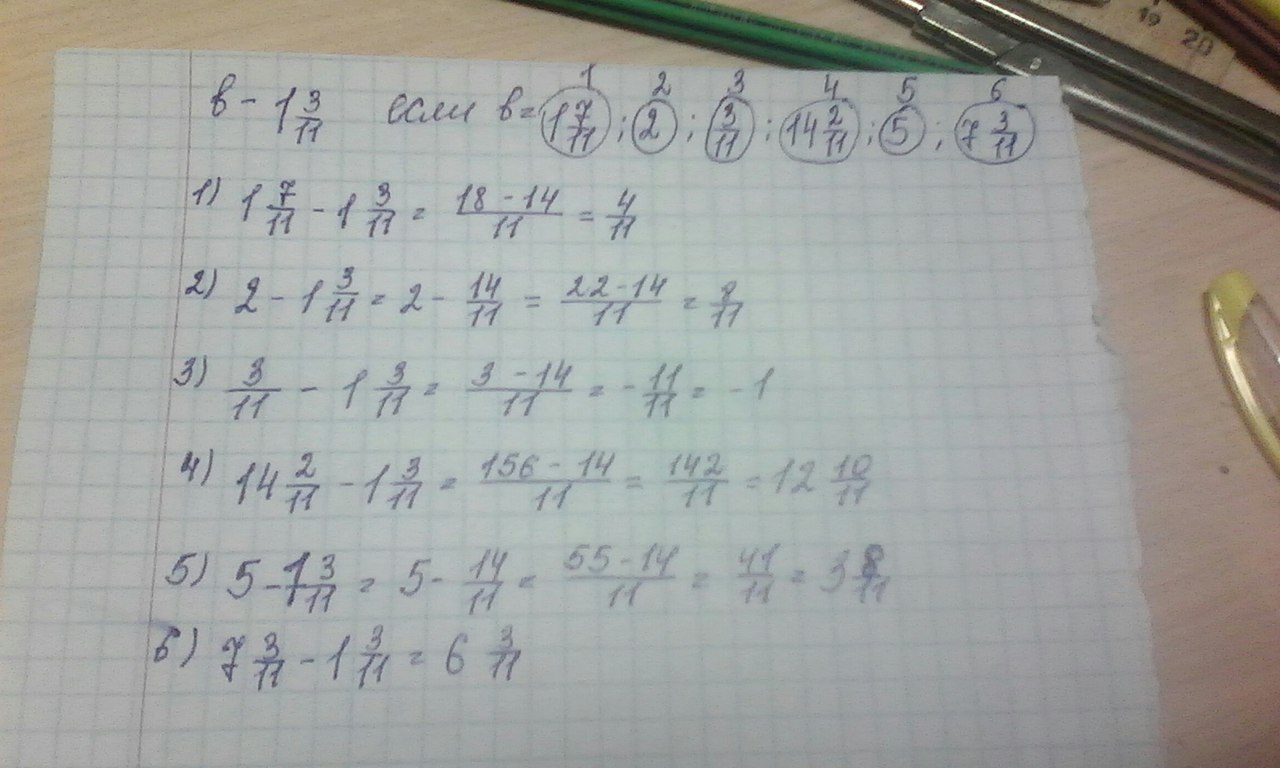 19 20
1 2 3 4 5 6
в - 1 3/11 если в = 1 7/11 ; 2 ; 3/11 ; 14 2/11 ; 5 ; 7 3/11
1) 1 7/11 - 1 3/11 = (18 - 14)/11 = 4/11
2) 2 - 1 3/11 = 2 - 14/11 = (22 - 14)/11 = 8/11
3) 3/11 - 1 3/11 = (3 - 14)/11 = - 11/11 = - 1
4) 14 2/11 - 1 3/11 = (156 - 14)/11 = 142/11 = 12 10/11
5) 5 - 1 3/11 = 5 - 14/11 = (55 - 14)/11 = 41/11 = 3 8/11
6) 7 3/11 - 1 3/11 = 6 3/11